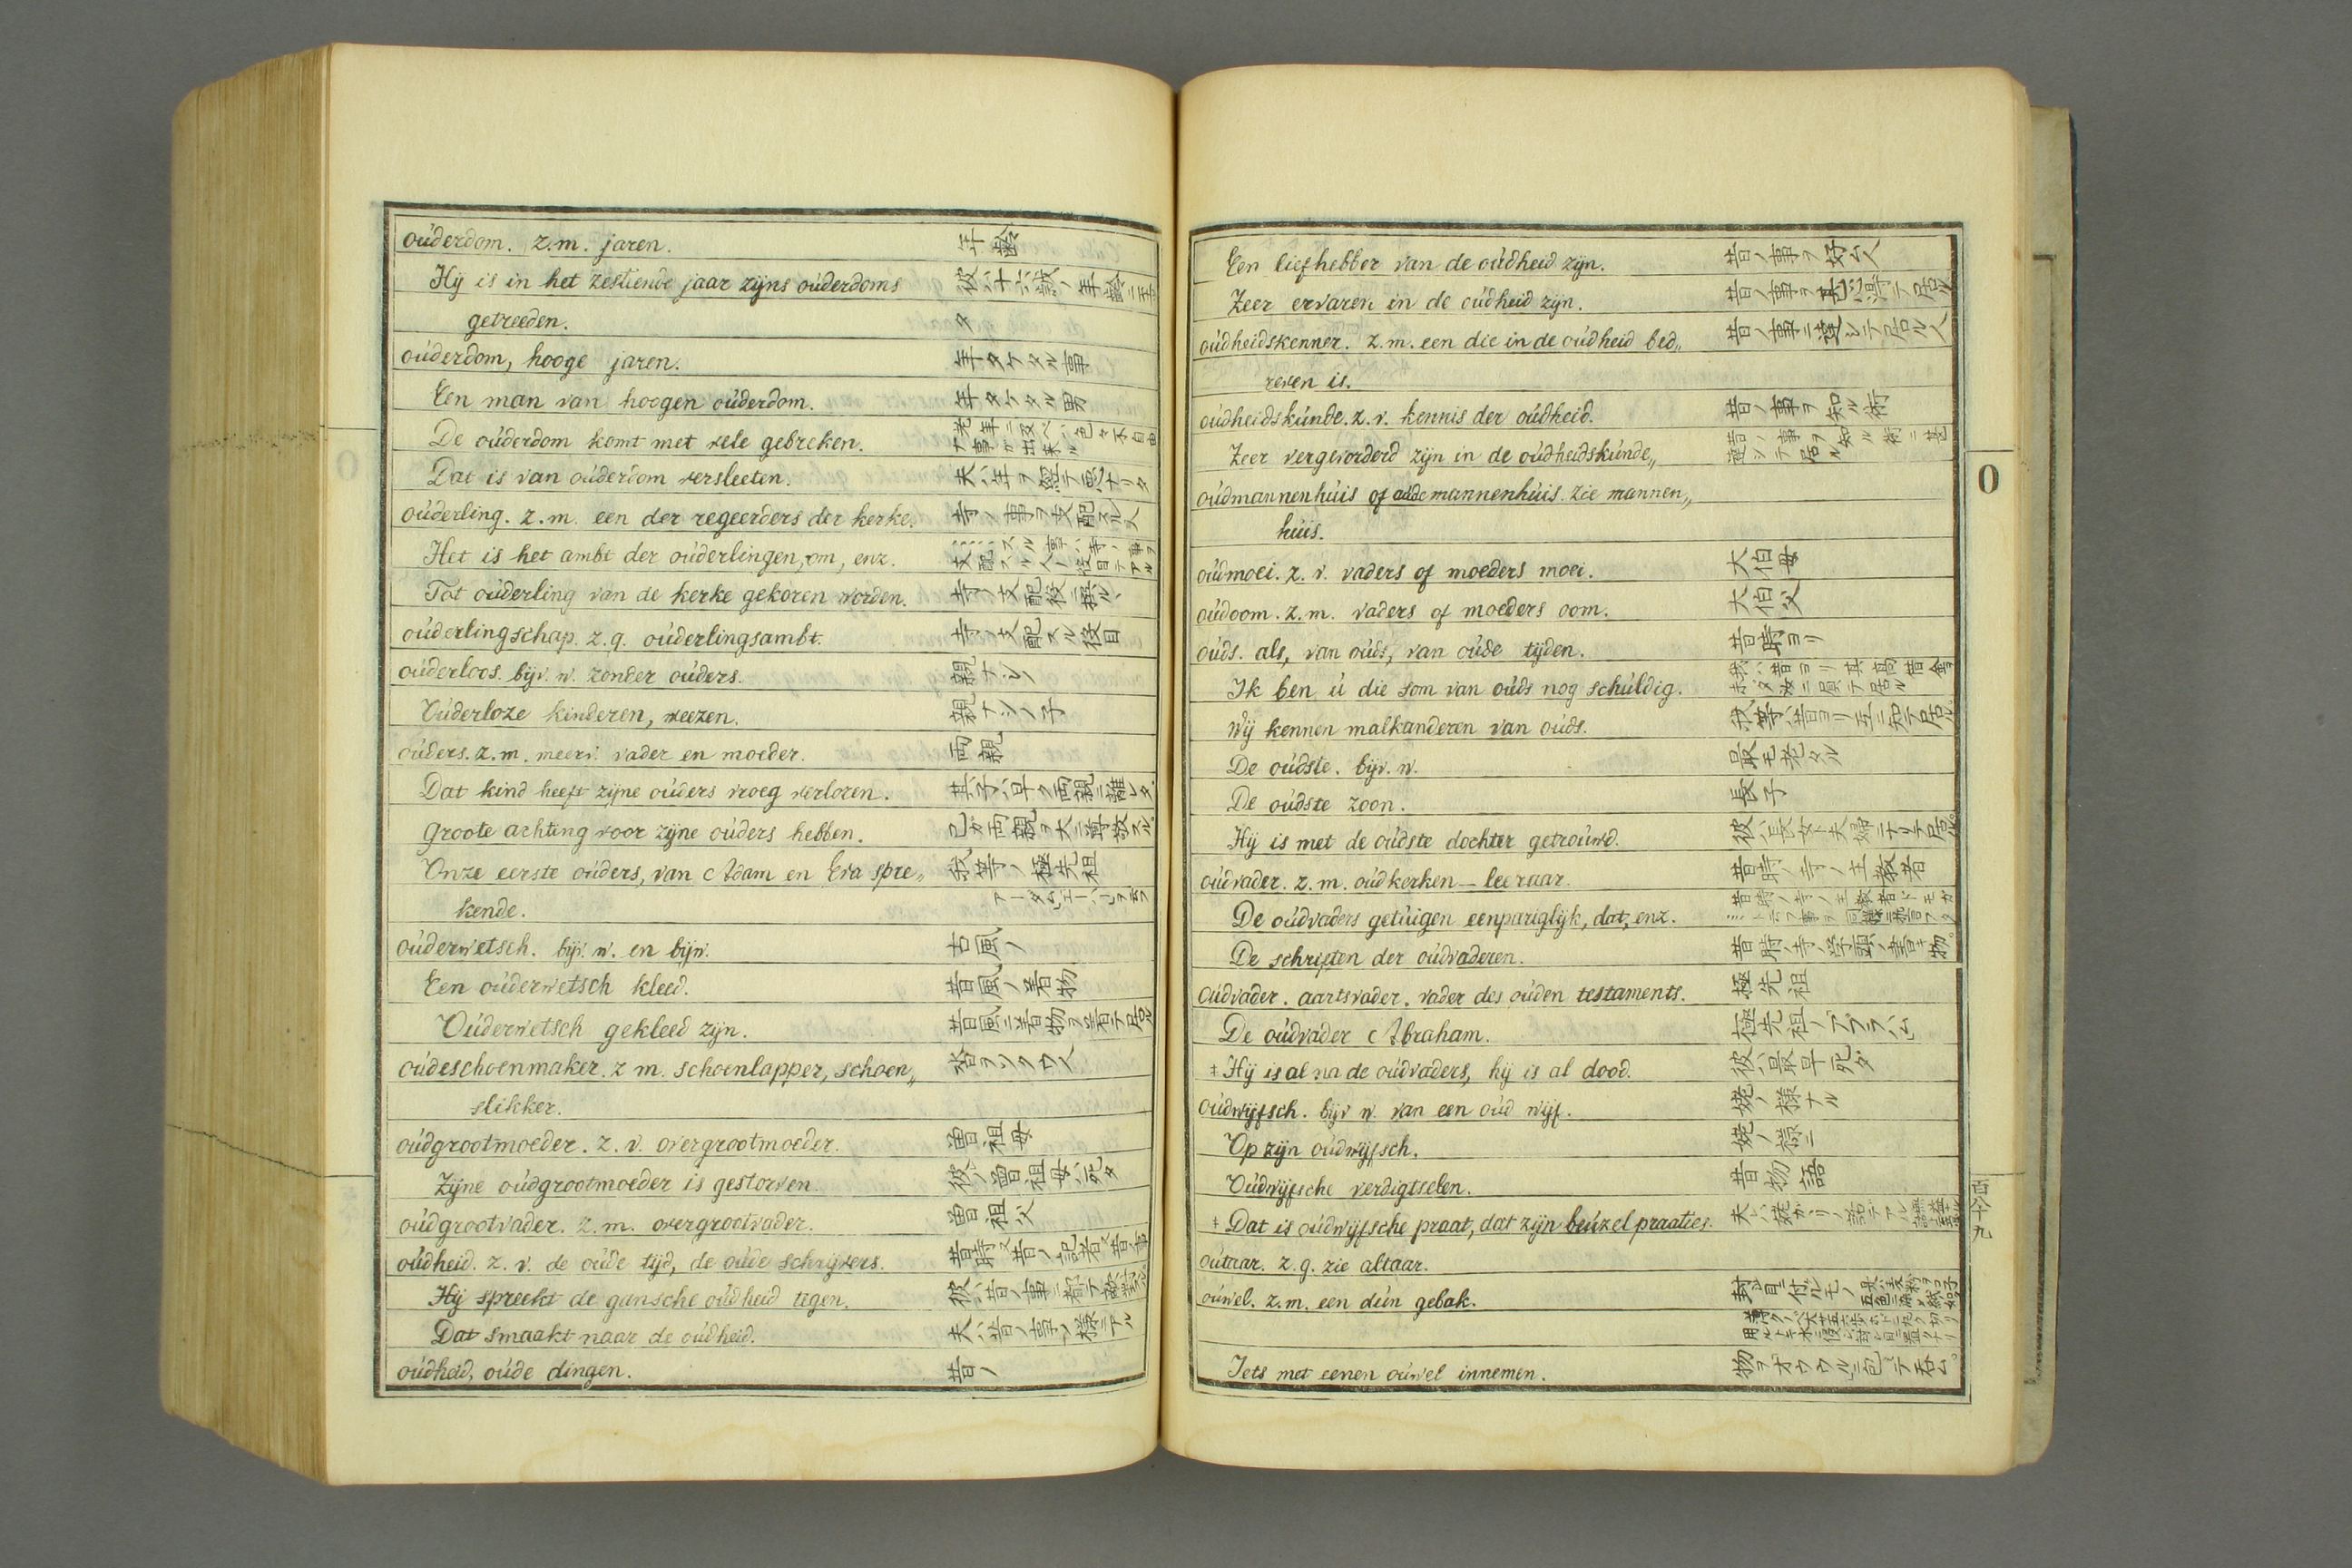 oúderdom. z.m. jaren. 年齢
Hij is in het zestiende jaar zijns oúderdoms 彼ハ十六歳ノ年齢ニ至
getreeden. タ
oúderdom, hooge jaren. 年タケタル事
Een man van hoogen oúderdom. 年タケタル男
De oúderdom komt met vele gebreken. 老年ニ及ベハ色々不自由ナ事ガ出来ル
Dat is van oúderdom versleeten. 夫ハ年ヲ経テ悪ナリタ
oúderling. z.m. een der regeerders der kerke. 寺ノ事ヲ支配スル人
Het is het ambt der oúderlingen, om, enz. スル事ハ寺ノ事ヲ支配スル人ノ役目テアル
Tot oúderling van de kerke gekoren worden. 寺ノ支配役ニ撰ル丶
oúderlingschap. z.g. oúderlingsambt. 寺ノ支配スル役目
oúderloos. bijv. w. zonder oúders. 親ナシノ
Oúderloze kinderen, weezen. 親ナシノ子
oúders. z.m. meerv. vader en moeder. 両親
Dat kind heeft zijne oúders vroeg verloren. 其子ハ早ク両親ニ離レタ
Groote achting voor zijne oúders hebben. 己ガ両親ヲ大ニ尊敬スル
Onze eerste oúders, van Adam en Eva spre„ 我等ノ極先祖
kende.
oúderwetsch. bijv. w. en bijw. 古風ノ
Een oúderwetsch kleed. 昔風ノ着物
Oúderwetsch gekleed zijn. 昔風ニ着物ヲ着テ居ル
oúdeschoenmaker. z m. schoenlapper, schoen„
slikker.
oúdgrootmoeder. z. v. overgrootmoeder. 曽祖母
Zijne oúdgrootmoeder is gestorven. 彼ノ曽祖母ハ死タ
oúdgrootvader. z. m. overgrootvader. 曽祖父
oúdheid. z. v. de oúde tijd, de oúde schrijvers. 昔時又昔ノ記者又昔事
Hij spreekt de gansche oúdheid tegen. 彼ハ昔ノ事ニ都テ敵対スル
Dat smaakt naar de oúdheid. 夫ハ昔ノ事ノ様テアル
oúdheid, oúde dingen. 昔ノ
Een liefhebber van de oúdheid zijn. 昔ノ事ヲ好ム人
Zeer ervaren in de oúdheid zijn. 昔ノ事ヲ甚タ
oúdheidskenner. z.m. een die in de oúdheid bed„ 昔ノ事ニ達シテ居ル人
reven is.
oúdheidskúnde. z. v. kennis der oúdheid. 昔ノ事ヲ知ル術
Zeer vergevorderd zijn in de oúdheidskúnde„ 昔ノ事ヲ知ル術ニ甚達シテ居ル
oúdmannenhúis of oúde mannenhúis. zie mannen„
húis.
oúdmoei. z. v. vaders of moeders moei. 大伯母
oúdoom. z.m. vaders of moeders oom. 大伯父
oúds. als, van oúds, van oúde tijden. 昔時ヨリ
Ik ben ú die som van oúds nog schúldig.
Wij kennen malkanderen van oúds. 我等ハ昔ヨリ互ニ知テ居ル
De oúdste. bijv. w. 最モ老タル
De oúdste zoon. 長子
Hij is met de oúdste dochter getroúwd. 彼ハ長女ト夫婦ニナリテ居ル
oúdvader. z.m. oúdkerken-leeraar. 昔時ノ寺ノ主教者
De oúdvaders getúigen eenpariglijk, dat, enz.
De schriften der oúdvaderen. 昔時ノ寺ノ学頭ノ書キ物
oúdvader. aartsvader. vader des oúden testaments. 極先祖
De oúdvader Abraham. 極先祖ノアブラハム
‡ Hij is al na de oúdvaders, hij is al dood. 彼ハ最早死タ
oúdwijfsch. bijv w. van een oúd wijf. 姥ノ様ナル
Op zijn oúdwijfsch. 姥ノ様ニ
Oúdwijfsche verdigtselen. 昔物語
‡ Dat is oúdwijfsche praat, dat zijn beúzelpraatjes.
oútaar. z.g. zie altaar.
oúwel. z.m. een dún gebak.
Iets met eenen oúwel innemen. 物ヲオウウルニ包ミテ呑ム
O